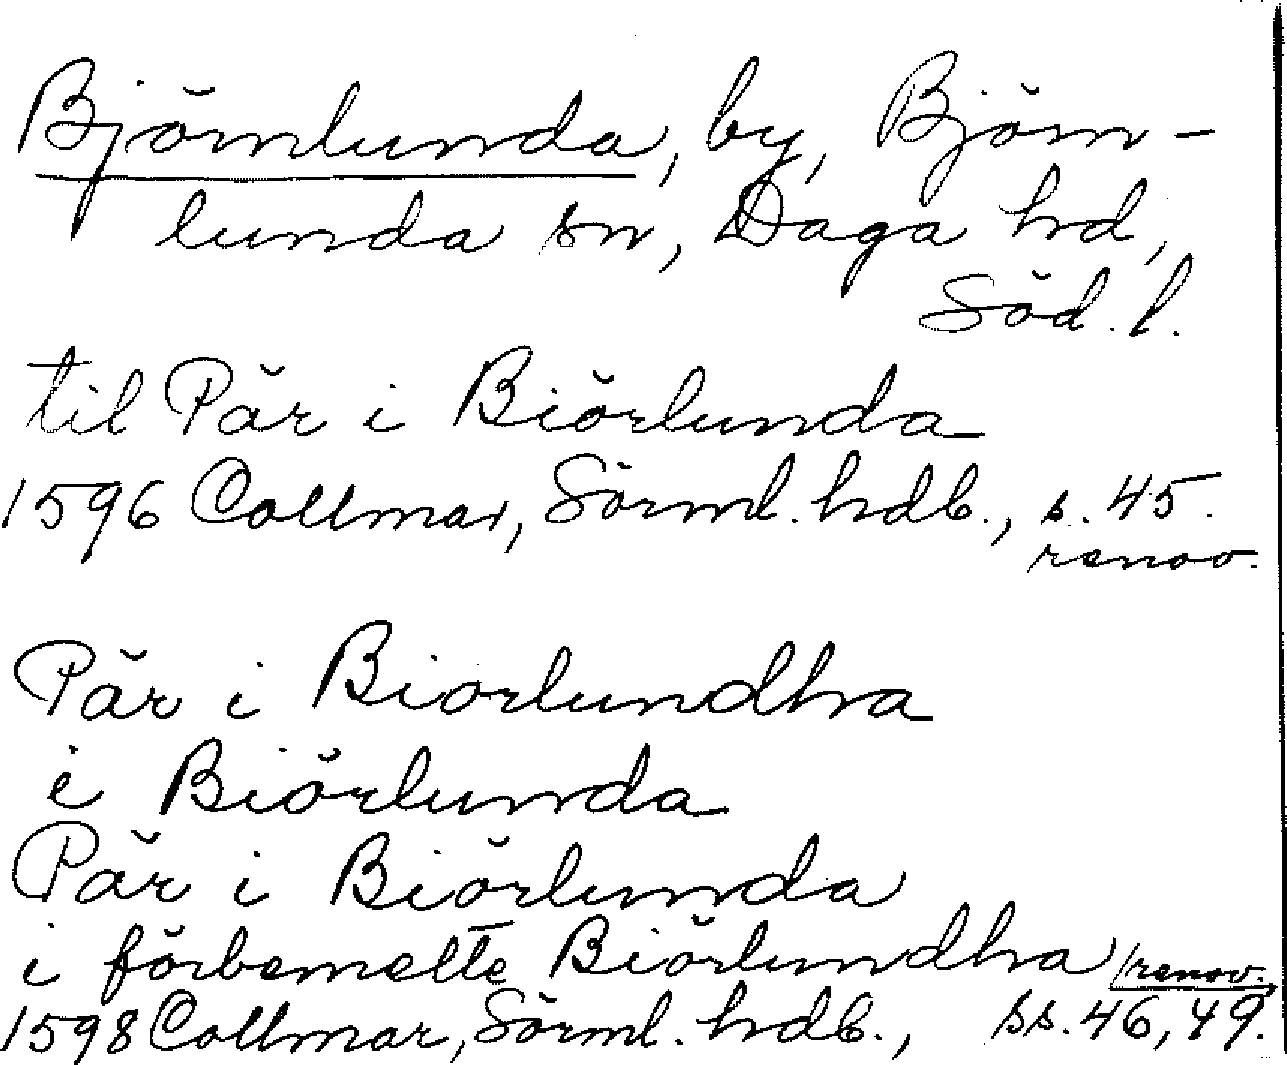 Björnlunda, by, Björn-
lunda sn, Daga hd,
Söd. l.
til Pär i Biörlunda
1596 Collmar, Sörml. hdb., s. 45.
renov.
Pär i Biorlundha
i Biörlunda
Pär i Biörlunda
i förbemellte Biörlundha renov.
1598 Collmar, Sörml. hdb., ss. 46, 49.